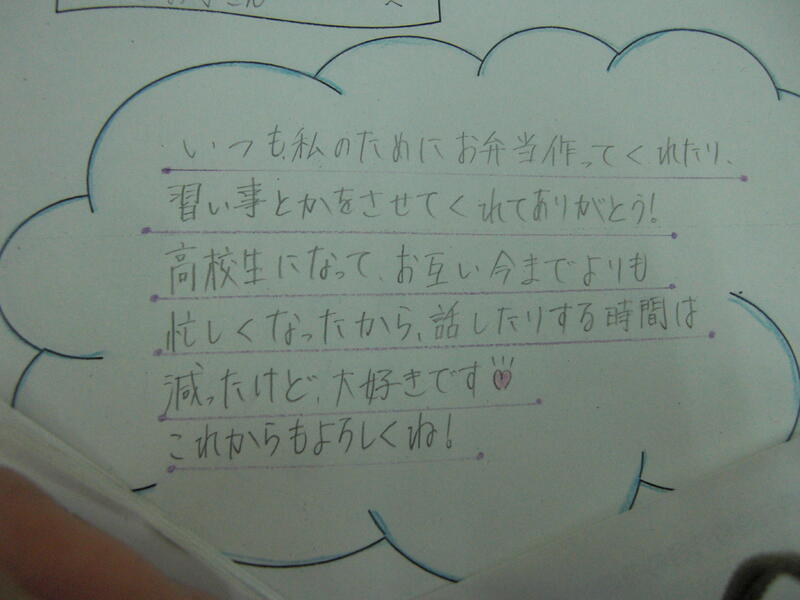 いつも私のためにお弁当作ってくれたり、
習い事とかをさせてくれてありがとう!
高校生になって、お互い今までよりも
忙しくなったから、話したりする時間は
減ったけど、大好きです
これからもよろしくね!